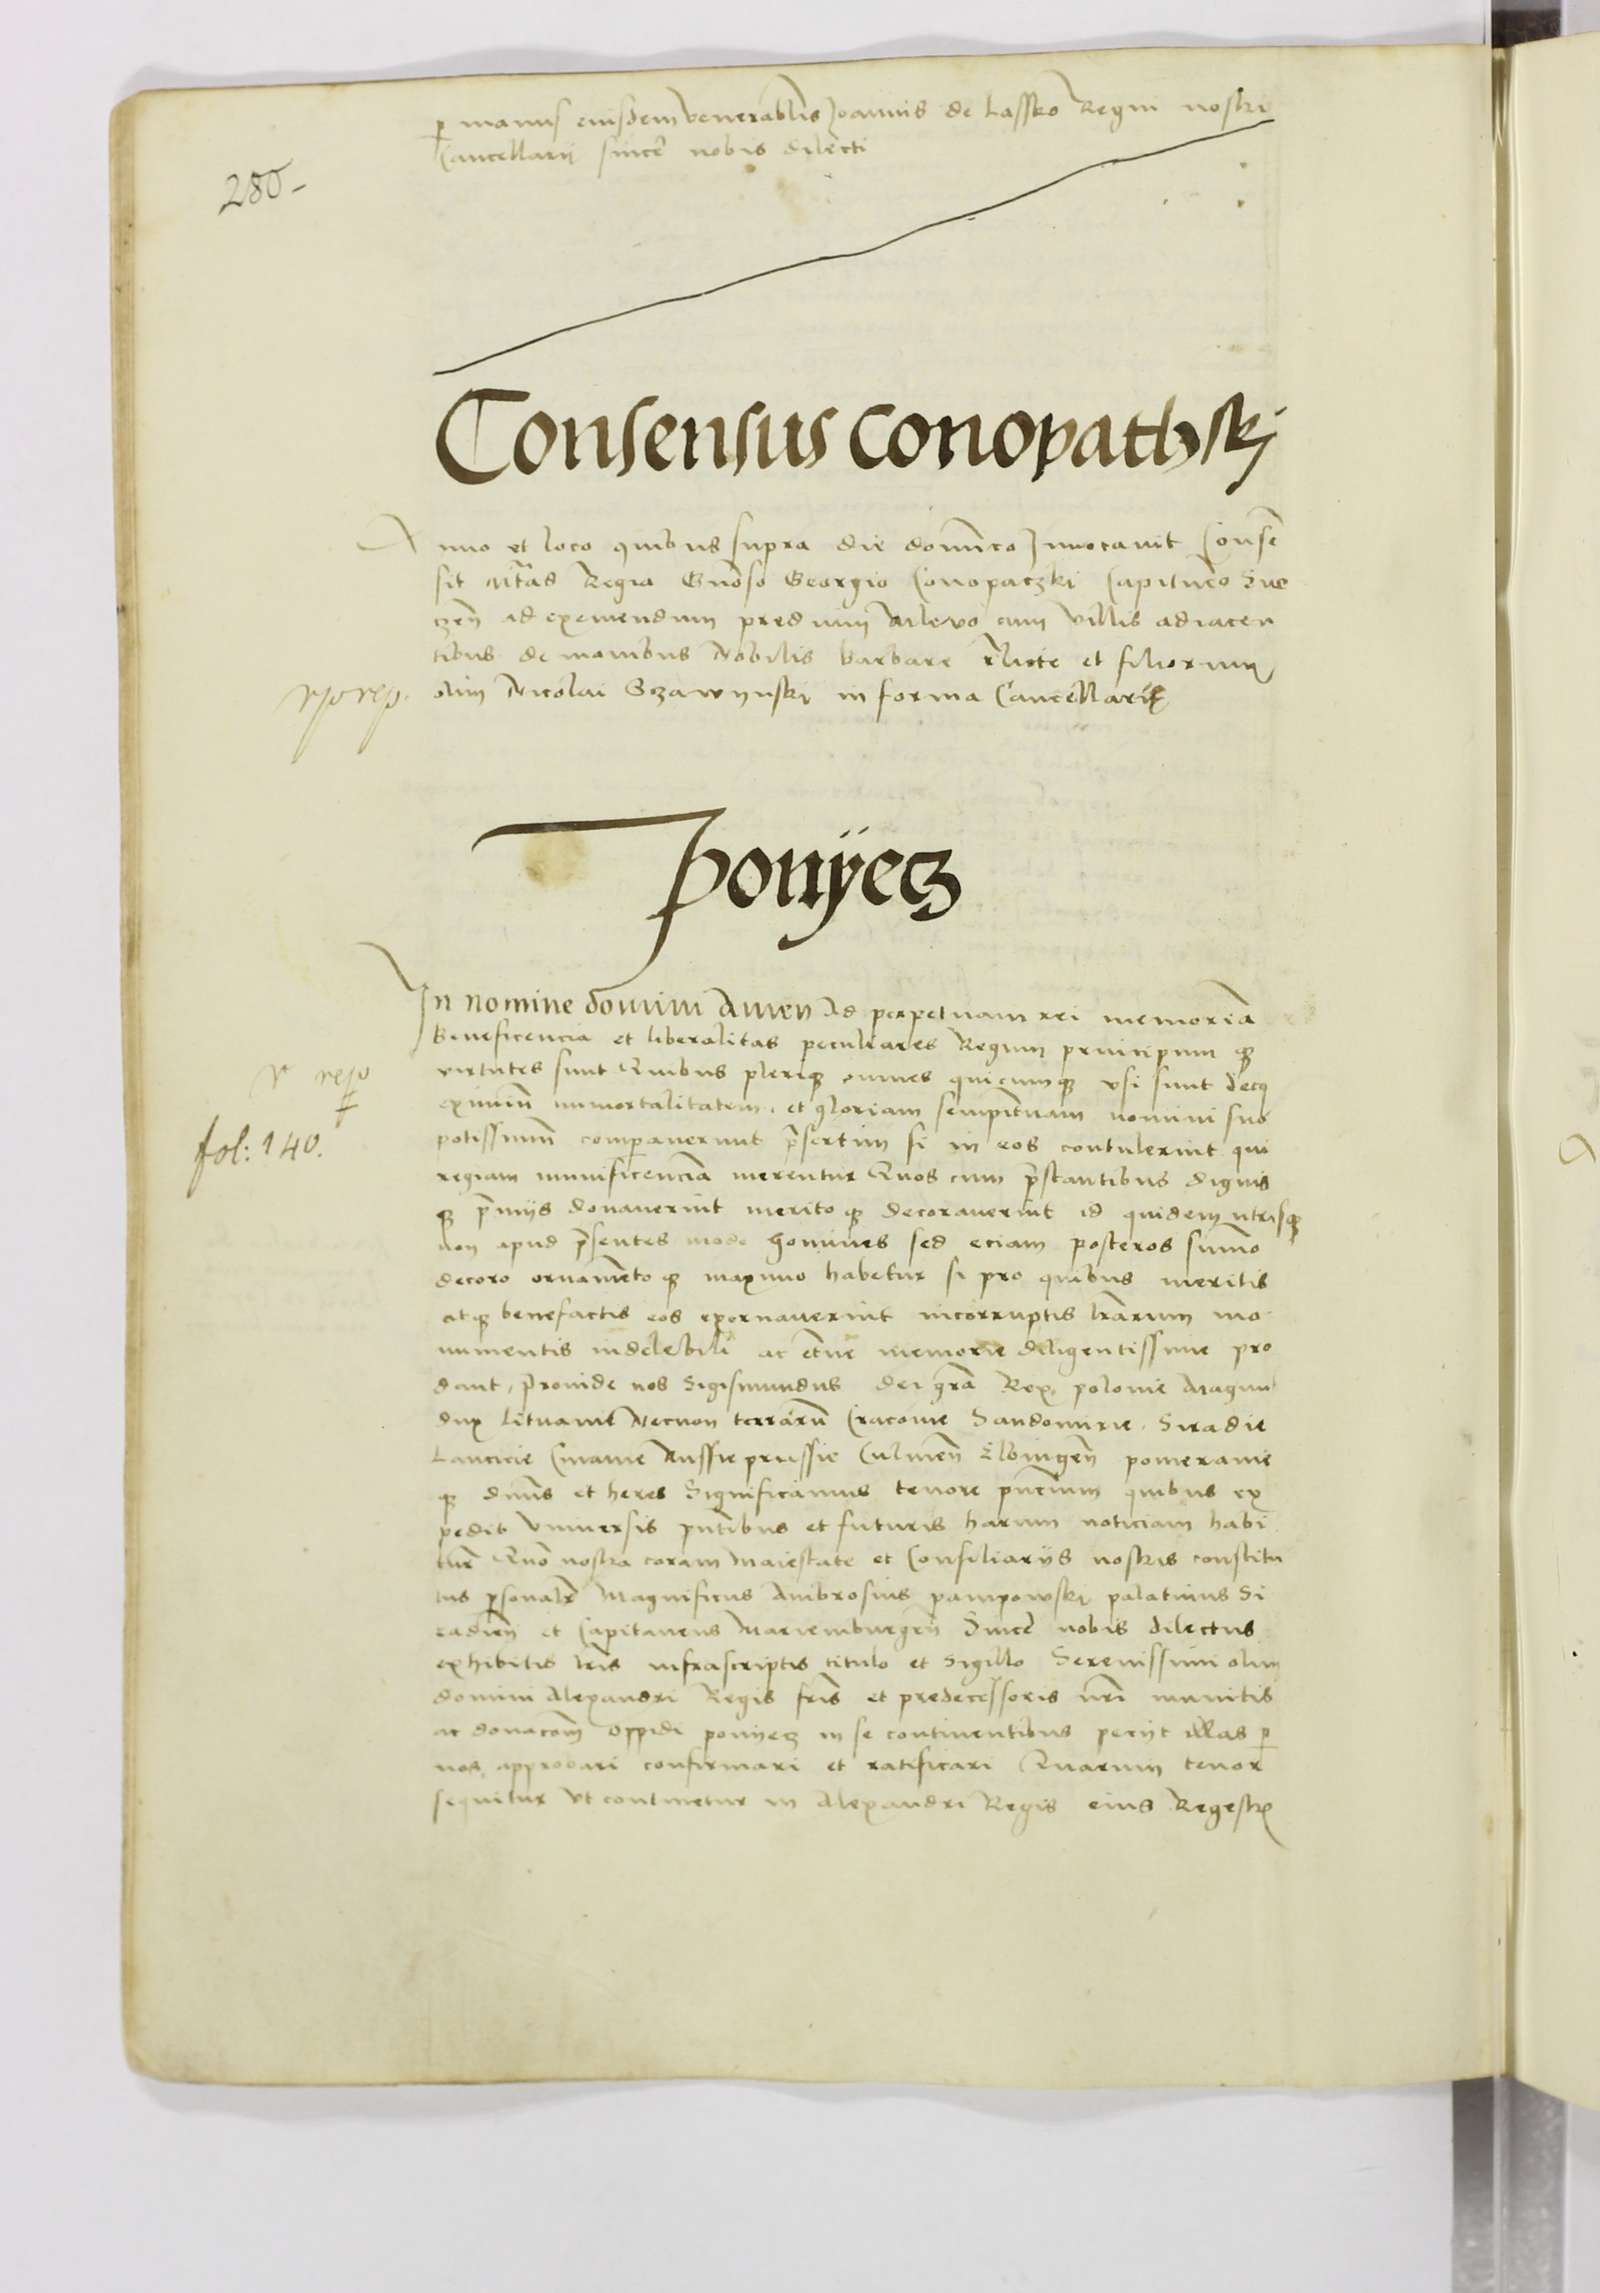 p manus eiusdem venerablis Joannis de Lassko Regni nostri
Cancellarij sincere nobis dilecti
280-
Consensus Conopathskj
Anno et loco quibus supra die domico Invocavit Consen
sit Mtas Regia Gnoso Georgio Conopaczki Capitaneo Sve
czen ad eximendum predium cum villis adiacen
tibus de manibus Nobilis Barbare relicte et filiorum
olim Nicolai Sczawynski in forma Cancellarie
Ponyecz
In nomine domini Amen Ad perpetuam rei memoriam
Beneficencia et liberalitas peculiares Regum principumq
virtutes sunt Quibus pleriq omnes quicumq usi sunt decq
eximium immortalitatem et gloriam sempiternam nomini suo
fol: 140.
potissimum comparaverunt psertim si in eos contulerint qui
regiam munificenciam merentur Quos cum pstantibus dignis
q pmijs donaverint meritoq decoraverint id quidem utrisq
non apud psentes modo homines sed eciam posteros summo
decoro ornamentoq maximo habetur si pro quibus meritis
atq benefactis eos exornaverint incorruptis lrarum mo
numentis indelebili ac eterne memorie diligentissime pro
dant, Proinde nos Sigismundus dei gra Rex polonie Magnus
dux Lituanie Necnon terrarum Cracovie Sandomirie Siradie
Lancicie Cuiavie Russie prussie Culmen Elbingen pomeranie
q dnus et heres Significamus tenore pncium quibus ex
pedit Universis pntibus et futuris harum noticiam habi
turis Quo nostra coram Maiestate et Consiliarijs nostris constitu
tus psonalr Magnificus Ambrosius pampowski palatinus Si
radien et Capitaneus Mariemburgen Sincere nobis dilectus
exhibitis lris infrascriptis titulo et Sigillo Serenissimi olim
domini Alexandri Regis fris et predecessoris nri munitis
ac donacom oppidi ponyecz in se continentibus petiit illas p
nos approbari confirmari et ratificari Quarum tenor
sequitur ut continetur in Alexandri Regis eius Regestro